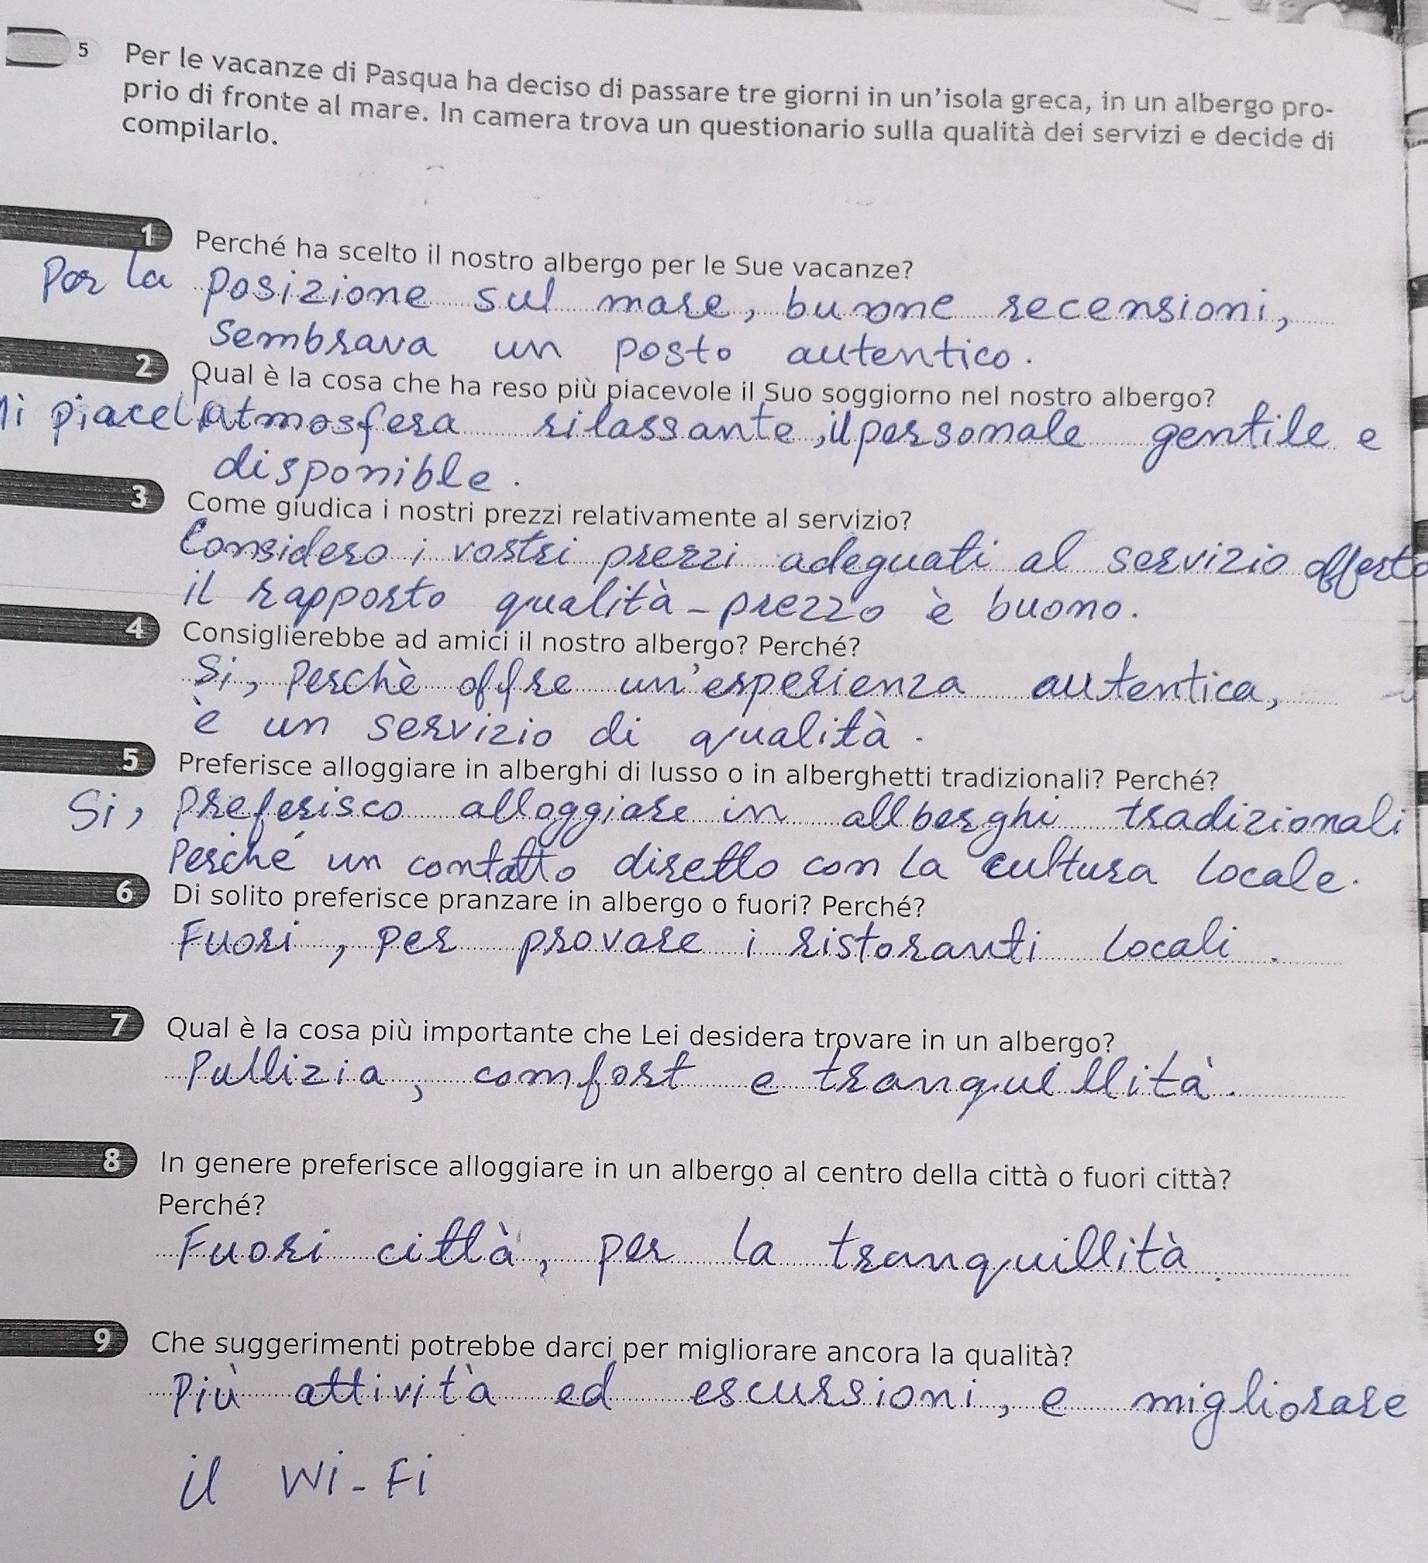 5 Per le vacanze di Pasqua ha deciso di passare tre giorni in un'isola greca, in un albergo pro-
prio di fronte al mare. In camera trova un questionario sulla qualità dei servizi e decide di
compilarlo.
1 Perché ha scelto il nostro albergo per le Sue vacanze?
Per la posizione sul mare, buone recensioni,
Sembrava un posto autentico.
2 Qual è la cosa che ha reso più piacevole il Suo soggiorno nel nostro albergo?
Mi piace l'atmosfera rilassante, il personale gentile e
disponible.
3 Come giudica i nostri prezzi relativamente al servizio?
Considero i vostri prezzi adeguati al servizio offerto
il rapporto qualità-prezzo è buono.
4 Consiglierebbe ad amici il nostro albergo? Perché?
Si, perchè offre un'esperienza autentica,
è un servizio di qualità.
5 Preferisce alloggiare in alberghi di lusso o in alberghetti tradizionali? Perché?
Si, preferisco alloggiare in allberghi tradizionali
Perché un contatto diretto con la cultura locale.
6 Di solito preferisce pranzare in albergo o fuori? Perché?
Fuori, per provare i ristoranti locali.
7 Qual è la cosa più importante che Lei desidera trovare in un albergo?
Pullizia, comfort e tranquillità.
8 In genere preferisce alloggiare in un albergo al centro della città o fuori città?
Perché?
Fuori città, per la tranquillità.
9 Che suggerimenti potrebbe darci per migliorare ancora la qualità?
Più attività ed escursioni, e migliorare
il Wi-Fi